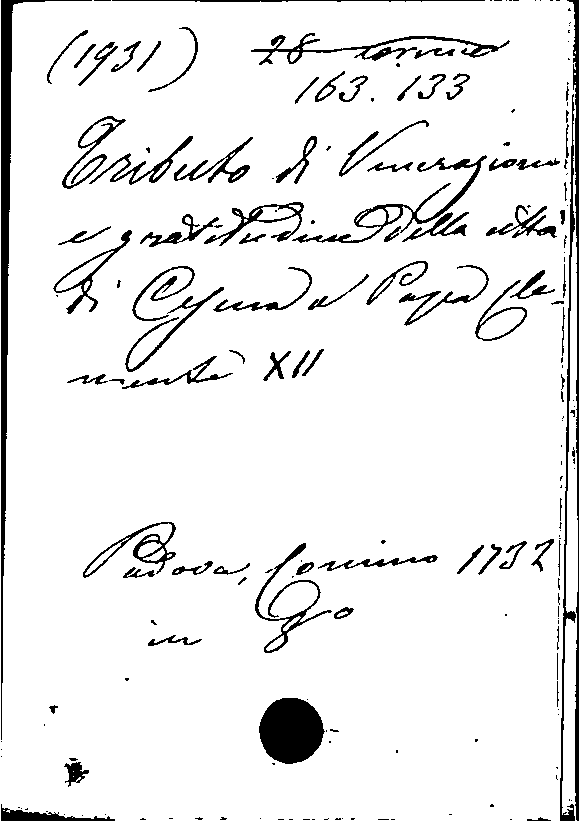 (1931) 28 comino
163. 133
Tributo di Venerazione
e gratitudine della città
di Cesena a Papa Cle-
mente XII
Padova, Comino 1732
in 8o